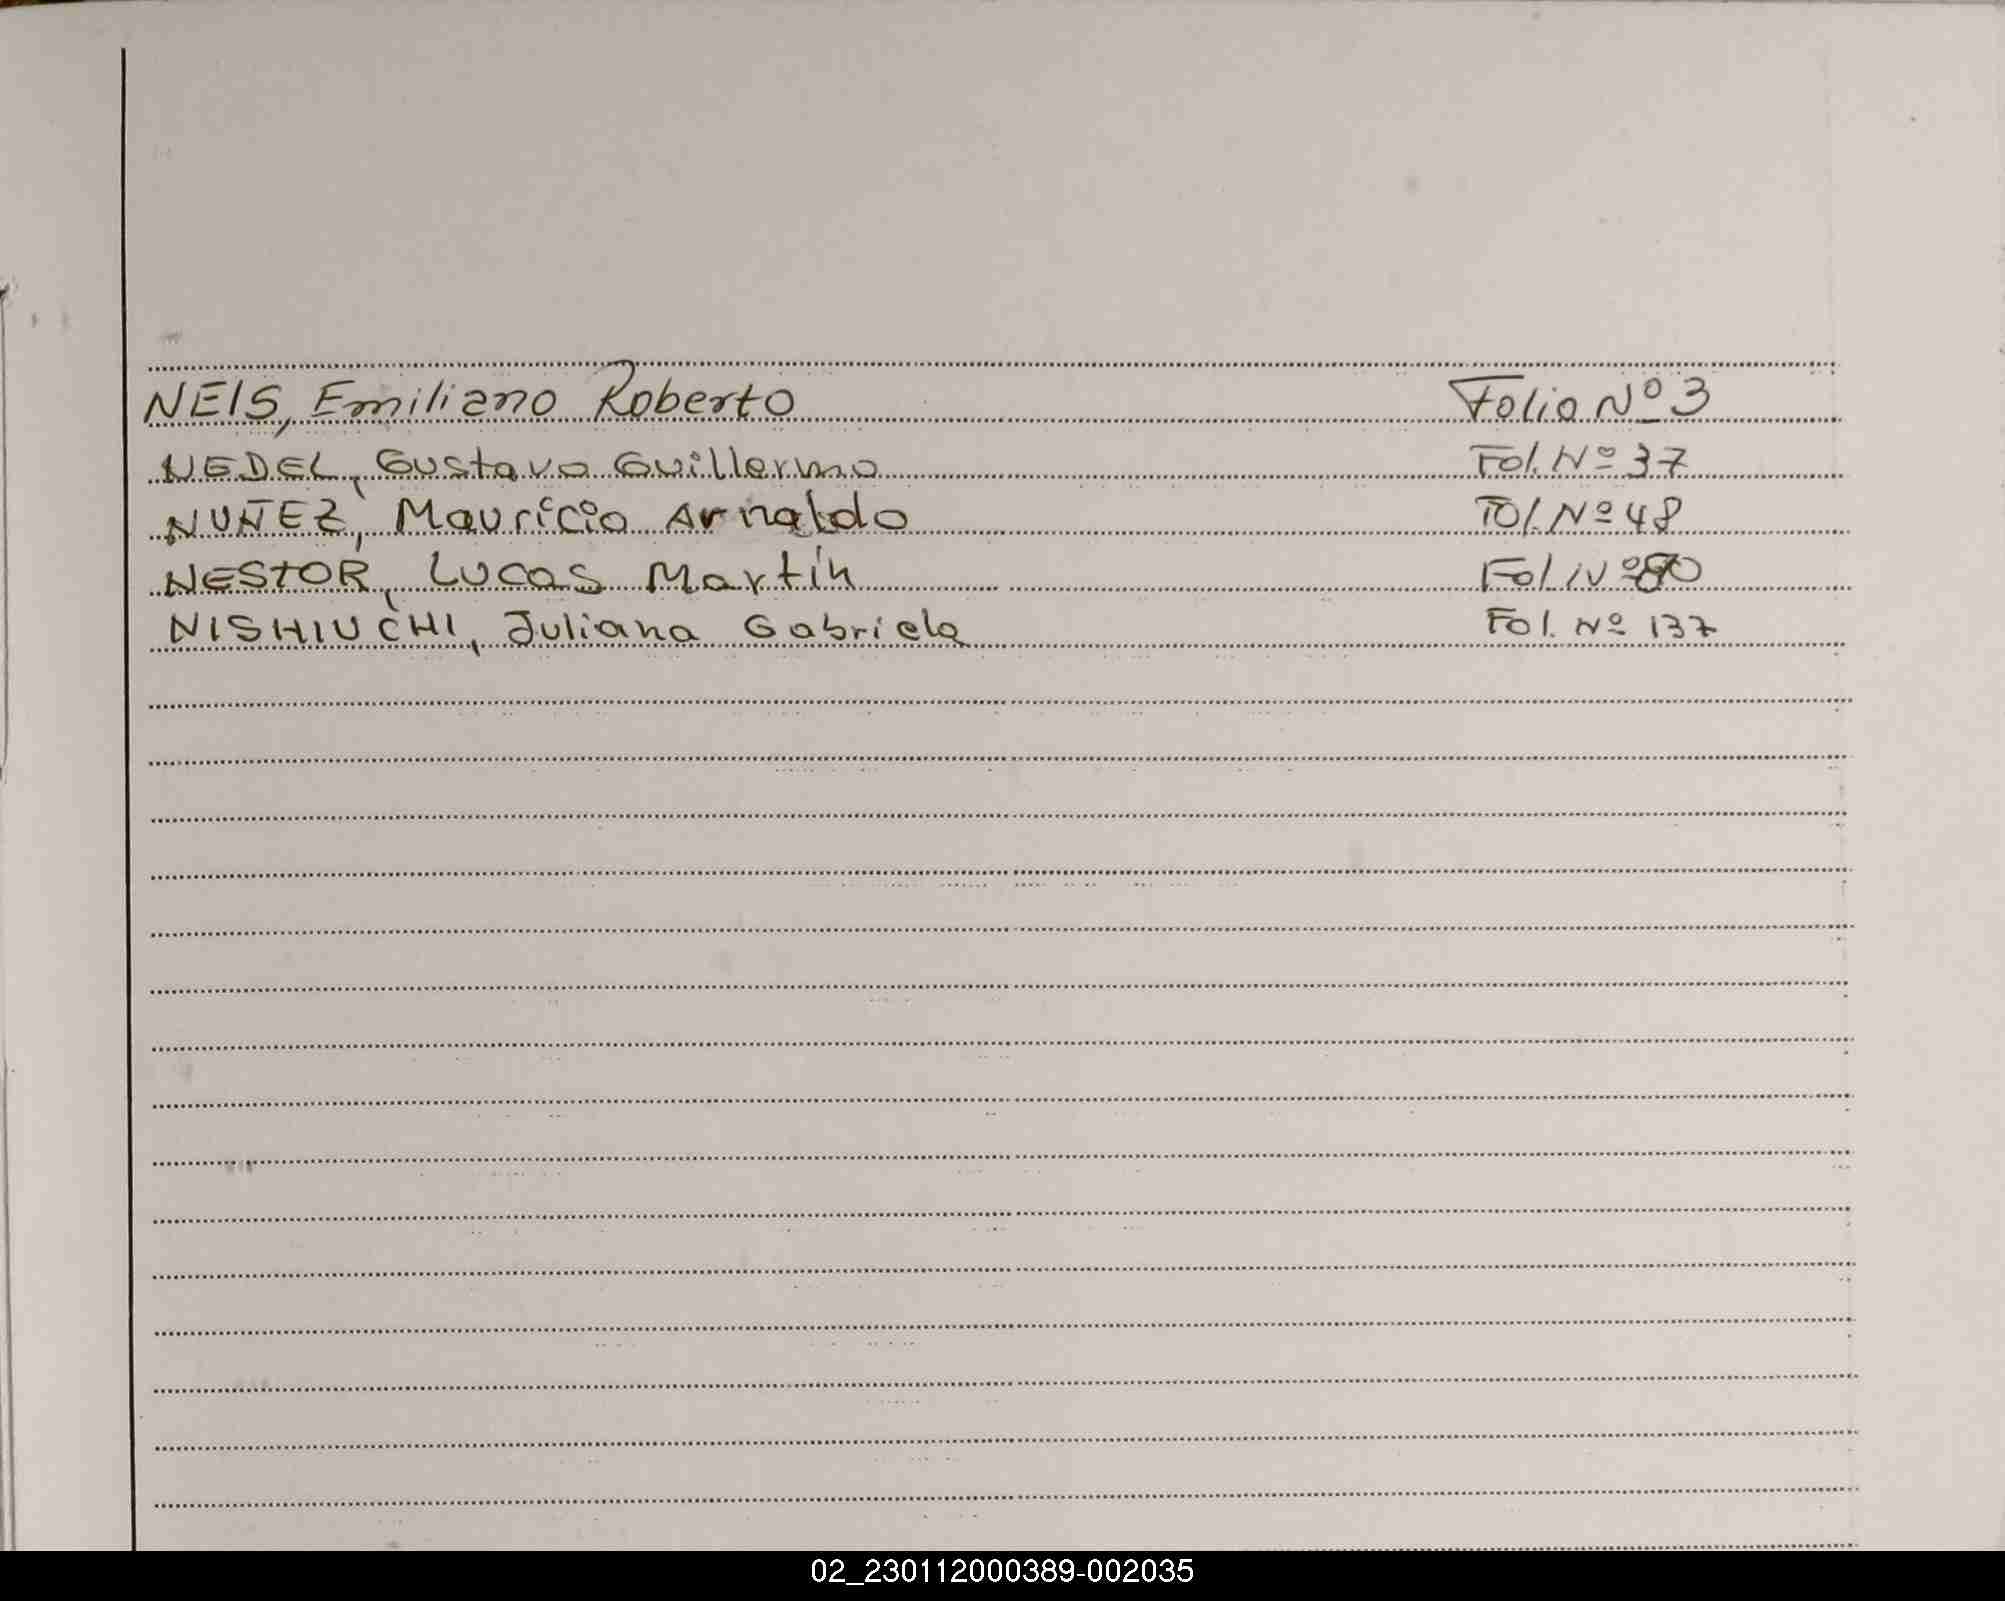 NEIS, Emiliano Roberto Folio Nº 3
NEDEL, Gustavo Guillermo Fol. Nº 37
NUÑEZ, Mauricio Arnaldo Fol. Nº 48
NESTOR, Lucas Martín Fol. Nº
NISHIUCHI, Juliana Gabriela Fol. Nº 137
02_230112000389-002035